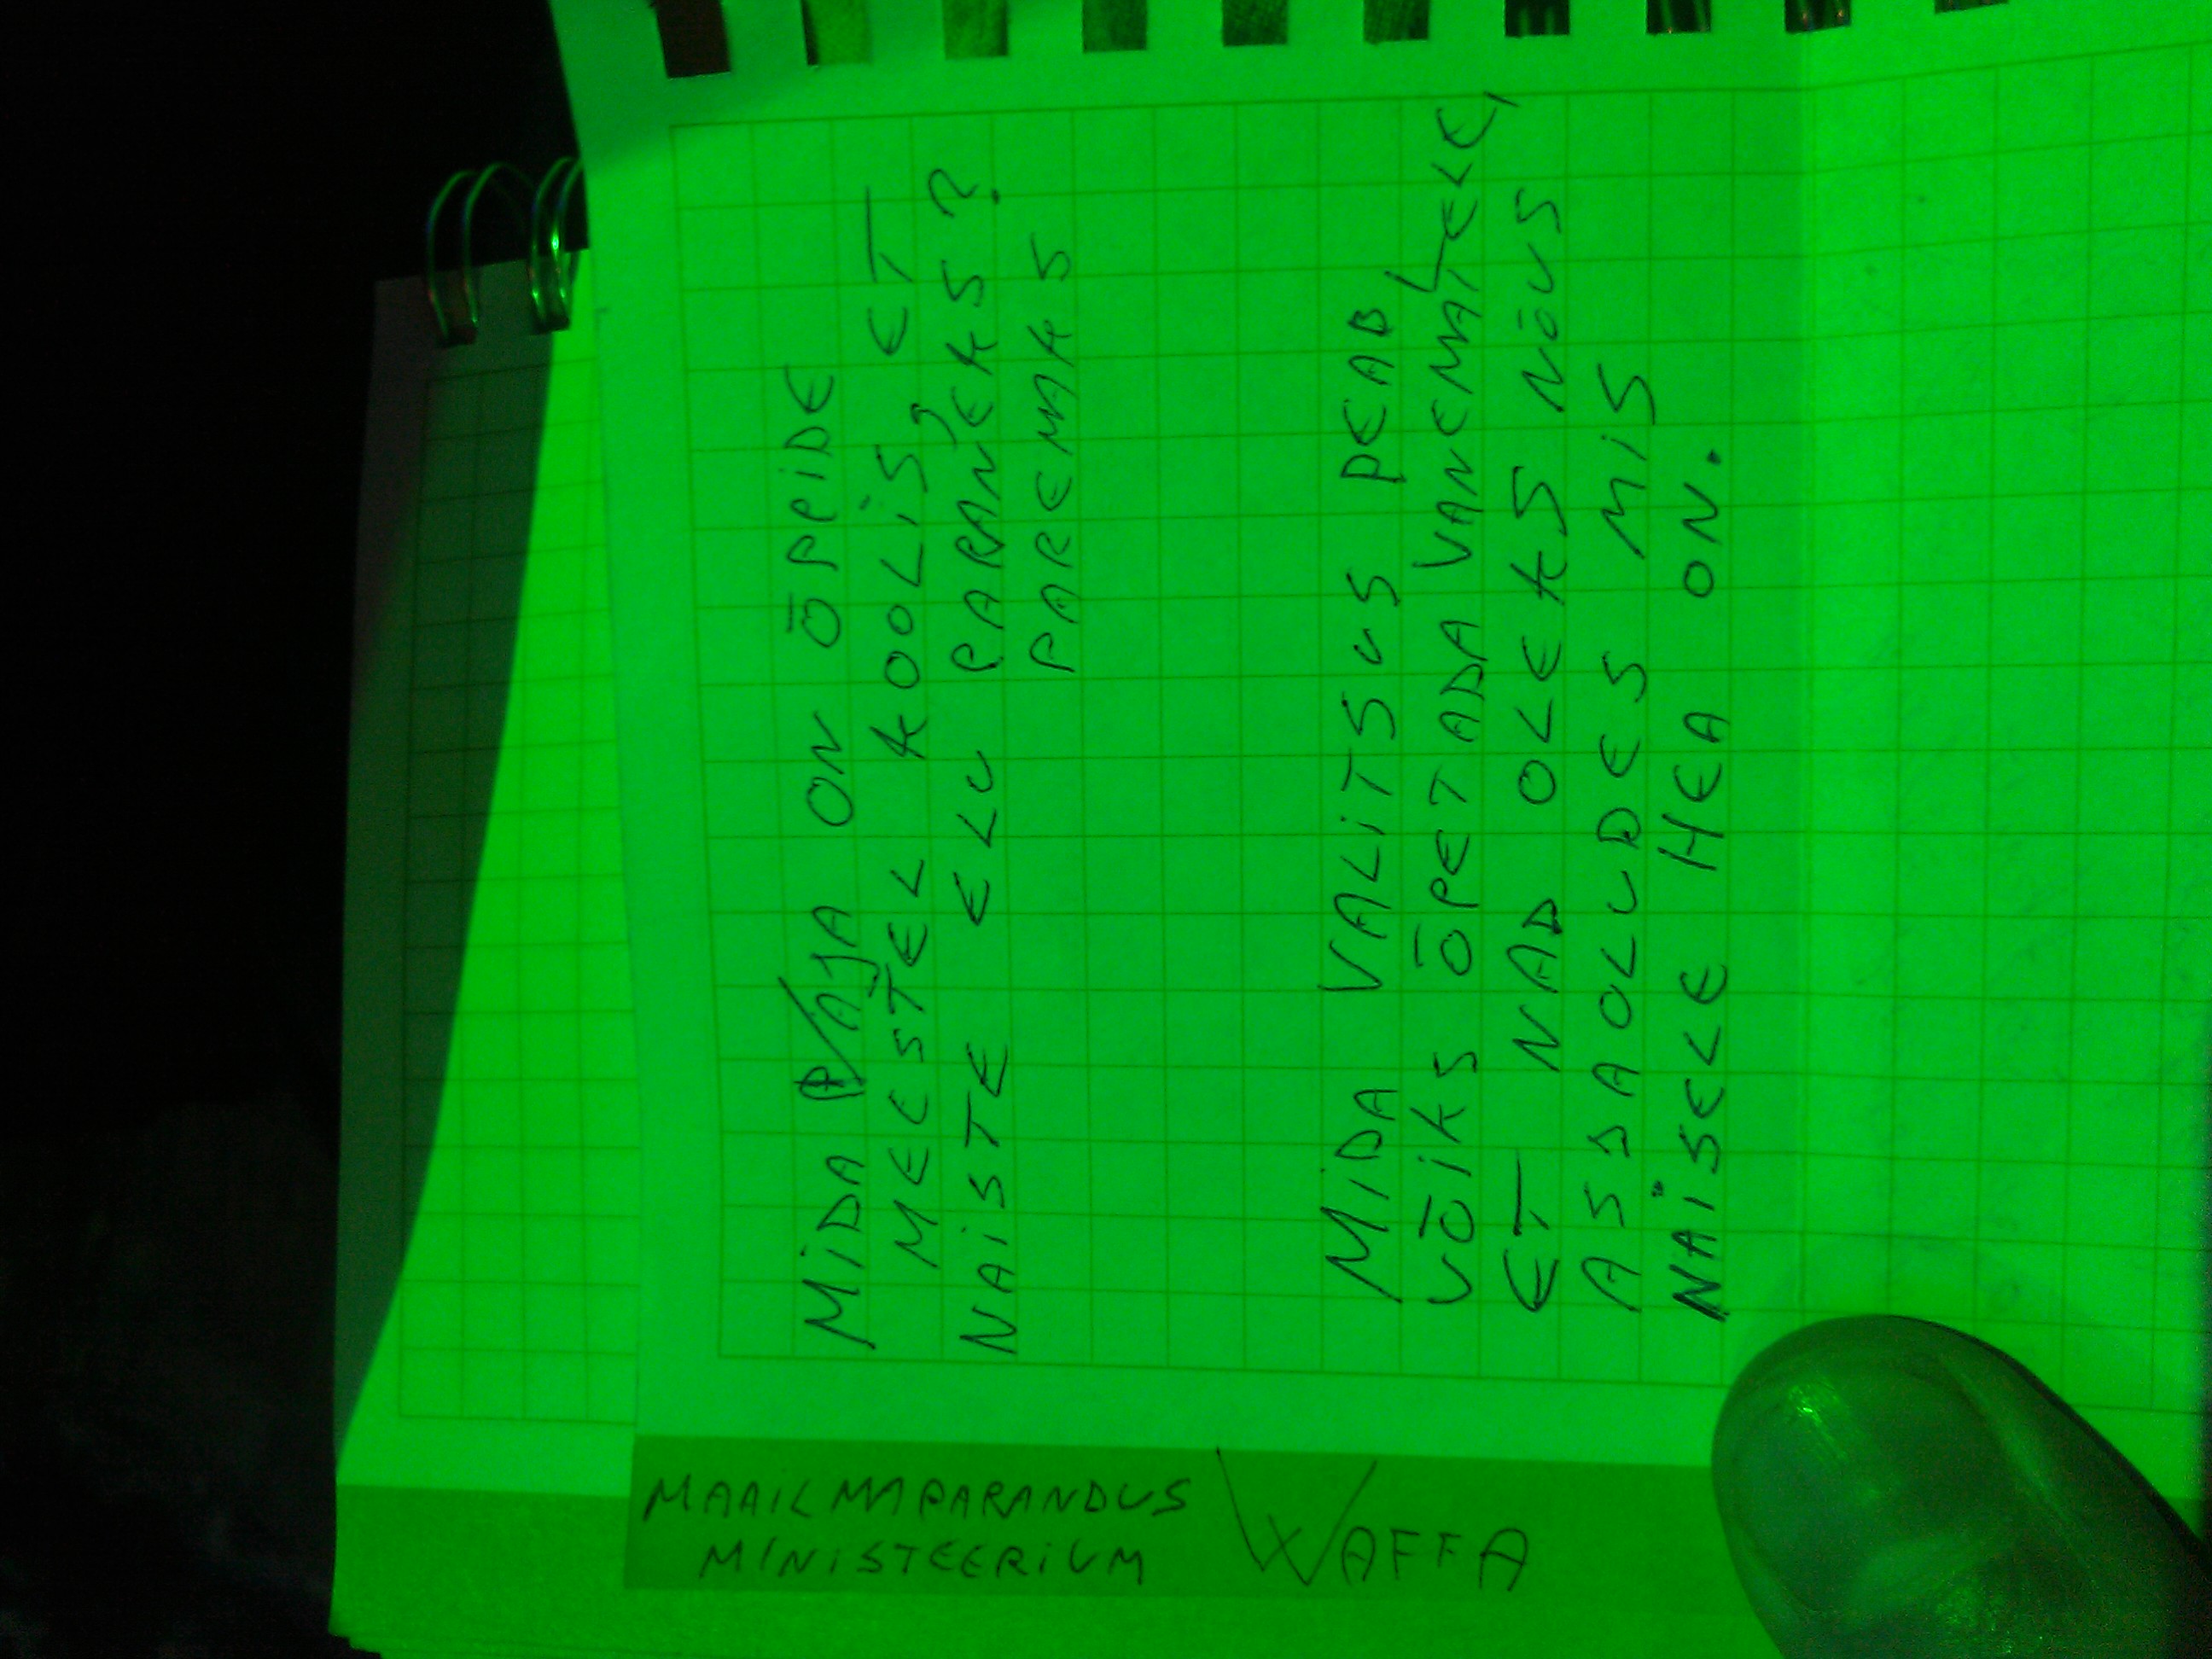 MIDA VAJA ON ÕPPIDE
MEESTEL KOOLIS, ET
NAISTE ELU PARANEKS?
PAREMAKS
MIDA VALITSUS PEAB
VÕIKS ÕPETADA VANEMATELE,
ET NAD OLEKS NÕUS
ASJAOLUDES MIS
NAISELE HEA ON.
MAAILMAPARANDUS
MINISTEERIUM
WAFFA